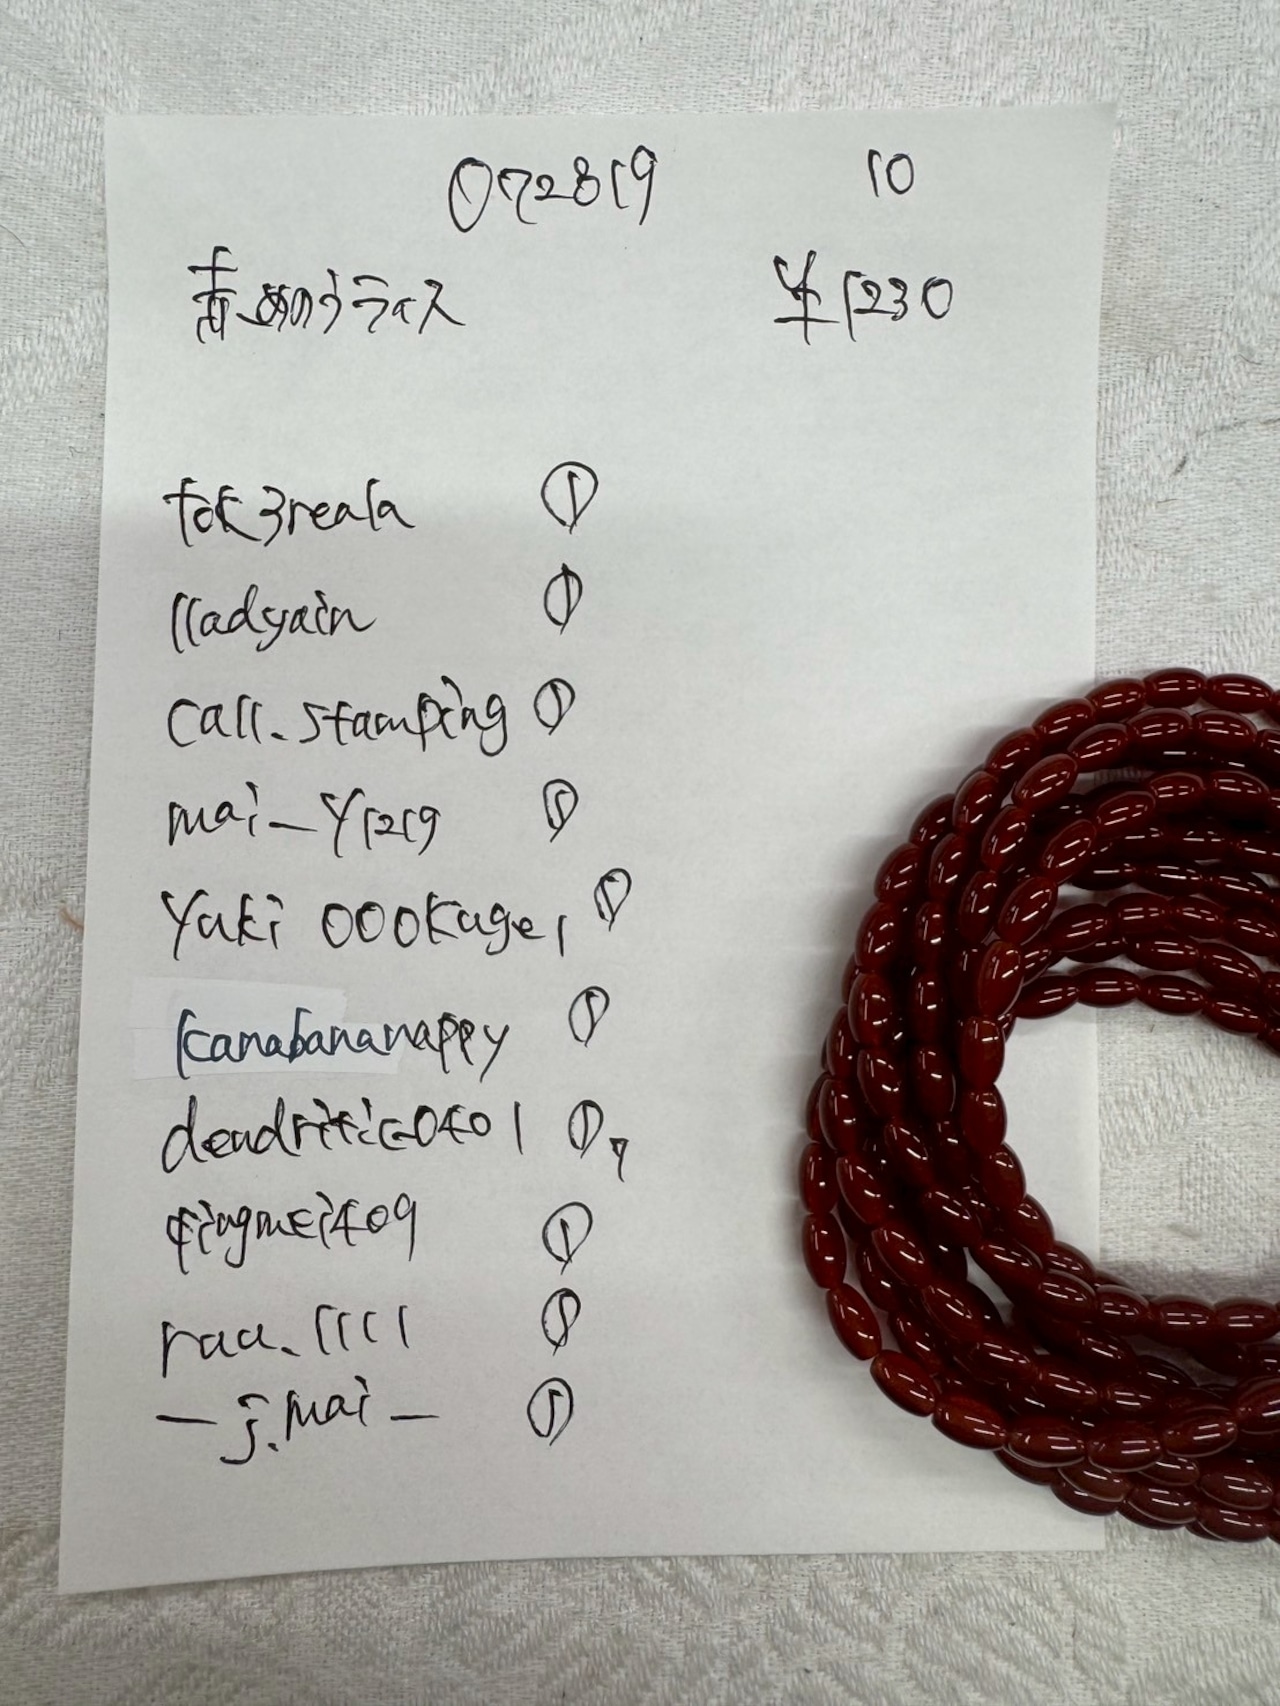 072819 10
赤めのうライス ¥1230
tok3reala ①
lladyain ①
call.stamping ①
mai_y1219 ①
Yuki 000kage1 ①
kanabananappy ①
dendritic0401 ①
qingmei409 ①
raa.1111 ①
_j.mai_ ①